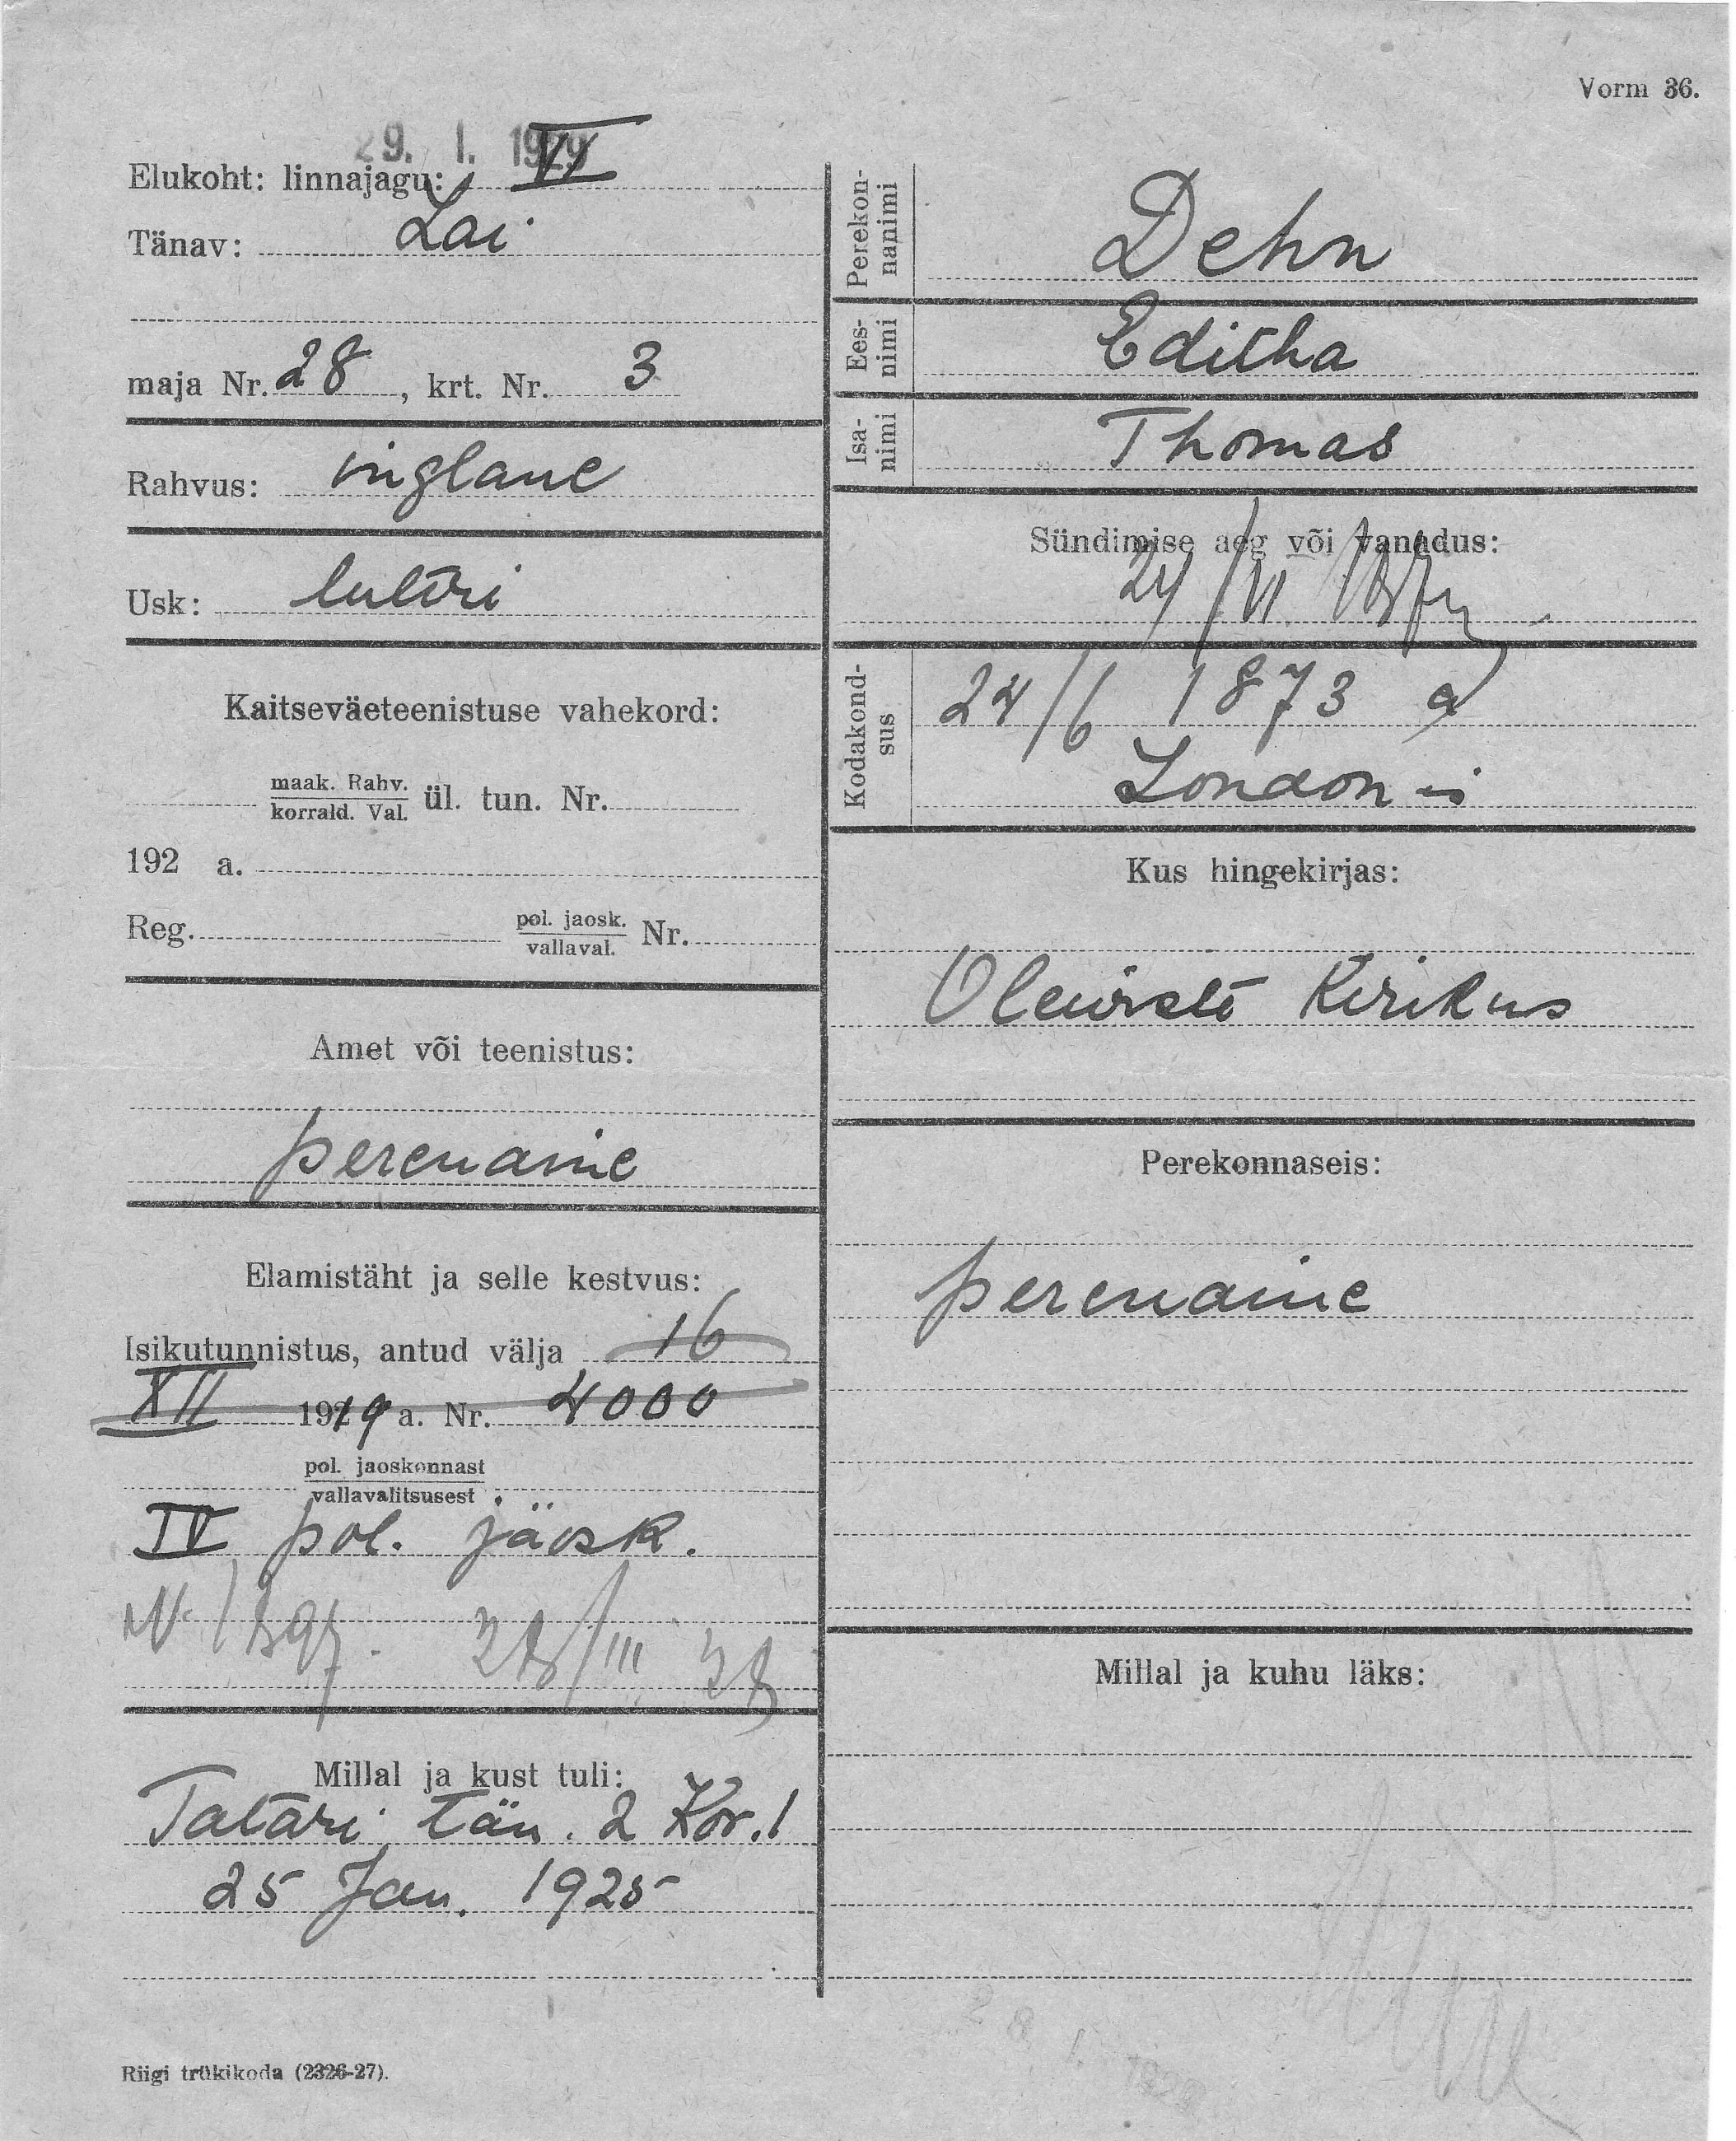 Vorm 36.
29. I. 1929
Elukoht: linnajagu: VI
Tänav: Lai
maja Nr. 28, krt. Nr. 3
Rahvus: inglane
Usk: luteri
Kaitseväeteenistuse vahekord:
maak. Rahv.
korrald. Val. ül. tun. Nr.
192 a.
Reg. pol. jaosk.
vallaval. Nr.
Amet või teenistus:
perenaine
Elamistäht ja selle kestvus:
Isikutunnistus, antud välja 16
XII 1919 a. Nr. 4000
pol. jaoskonnast
vallavalitsusest
IV pol. jäosk.
28/III 28
Millal ja kust tuli:
Tatari tän. 2 Kor. 1
25 Jan. 1925
Riigi trükikoda (2326-27).
Perekon-
nanimi
Dehn
Ees-
nimi
Editha
Isa-
nimi
Thomas
Sündimise aeg või vanadus:
24/VI
Kodakond-
sus
24/6 1873 a
London is
Kus hingekirjas:
Oleviste Kirikus
Perekonnaseis:
perenaine
Millal ja kuhu läks:
28. I. 1929